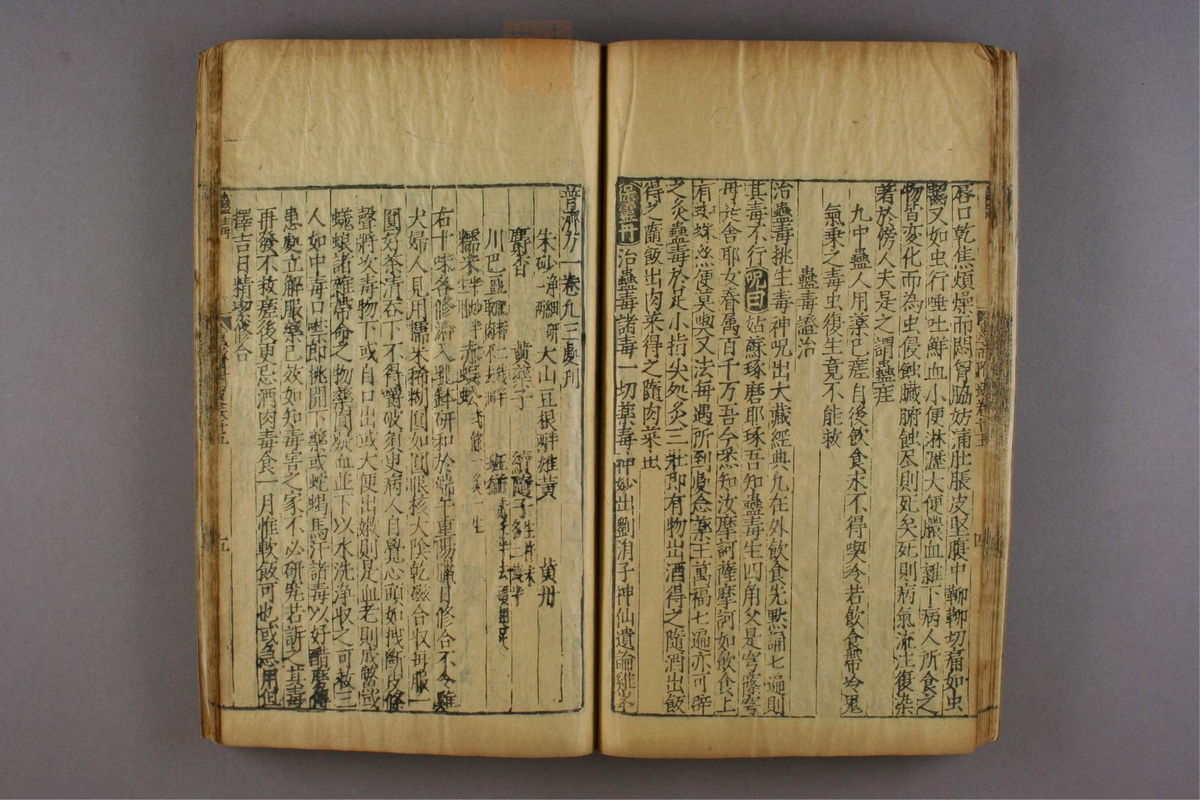 唇口乾焦煩燥而悶胷脇妨痛肚脹皮堅腹中㽲㽲切痛如虫
囓又如虫行唾吐鮮血小便淋瀝大便膿血雜下病人所食之
物皆変化而為虫侵蝕臟腑蝕尽則死矣死則病氣流注復染
著於傍人夫是之謂蠱疰
九中蠱人用藥已瘥自後飲食永不得喫冷若飲食帶冷鬼
氣乗之毒虫復生竟不能救
蠱毒證治
治蠱毒挑生毒神呪出大藏經典凡在外飲食先黙誦七遍則
其毒不行呪曰姑蘇琢磨耶琢吾知蠱毒生四角父是穹窿穹
母是舍耶女眷屬百千万吾今悉知汝摩訶薩摩訶如飲食上
有蛛絲便莫喫又法每遇所到處念藥王萬福七遍亦可辟
之灸蠱毒於足小指尖処灸三壯即有物出酒得之隨酒出飯
得之隨飯出肉菜得之隨肉菜出
保靈丹 治蠱毒諸毒一切藥毒神妙出劉涓子神仙遺論
普济方 卷九
朱砂 大山豆根 雄黄 黄丹
麝香 黄藥子 續隨子
川巴豆 斑猫
糯米 赤蜈蚣
右十味各修治入乳鉢研和於端午重陽臘日修合不令雞
犬婦人見用糯米稀糊圓如圓眼核大陰乾磁合収每服一
圓好茶清吞下不得嚼破須臾病人自覺心頭如拽断皮條
聲將次毒物下或自口出或大便出嫩則是血老則成鱉或
蜣蜋諸雜帶命之物藥圓凝血並下以水洗浄収之可救三
人如中毒口噤即挑開下藥或蛇蝎馬汗諸毒以好醋磨傅
患處立解服藥已效如知毒害之家不必研究若訴之其毒
再發不救瘥後更忌酒肉毒食一月惟軟飯可也或急用但
擇吉日精潔修合